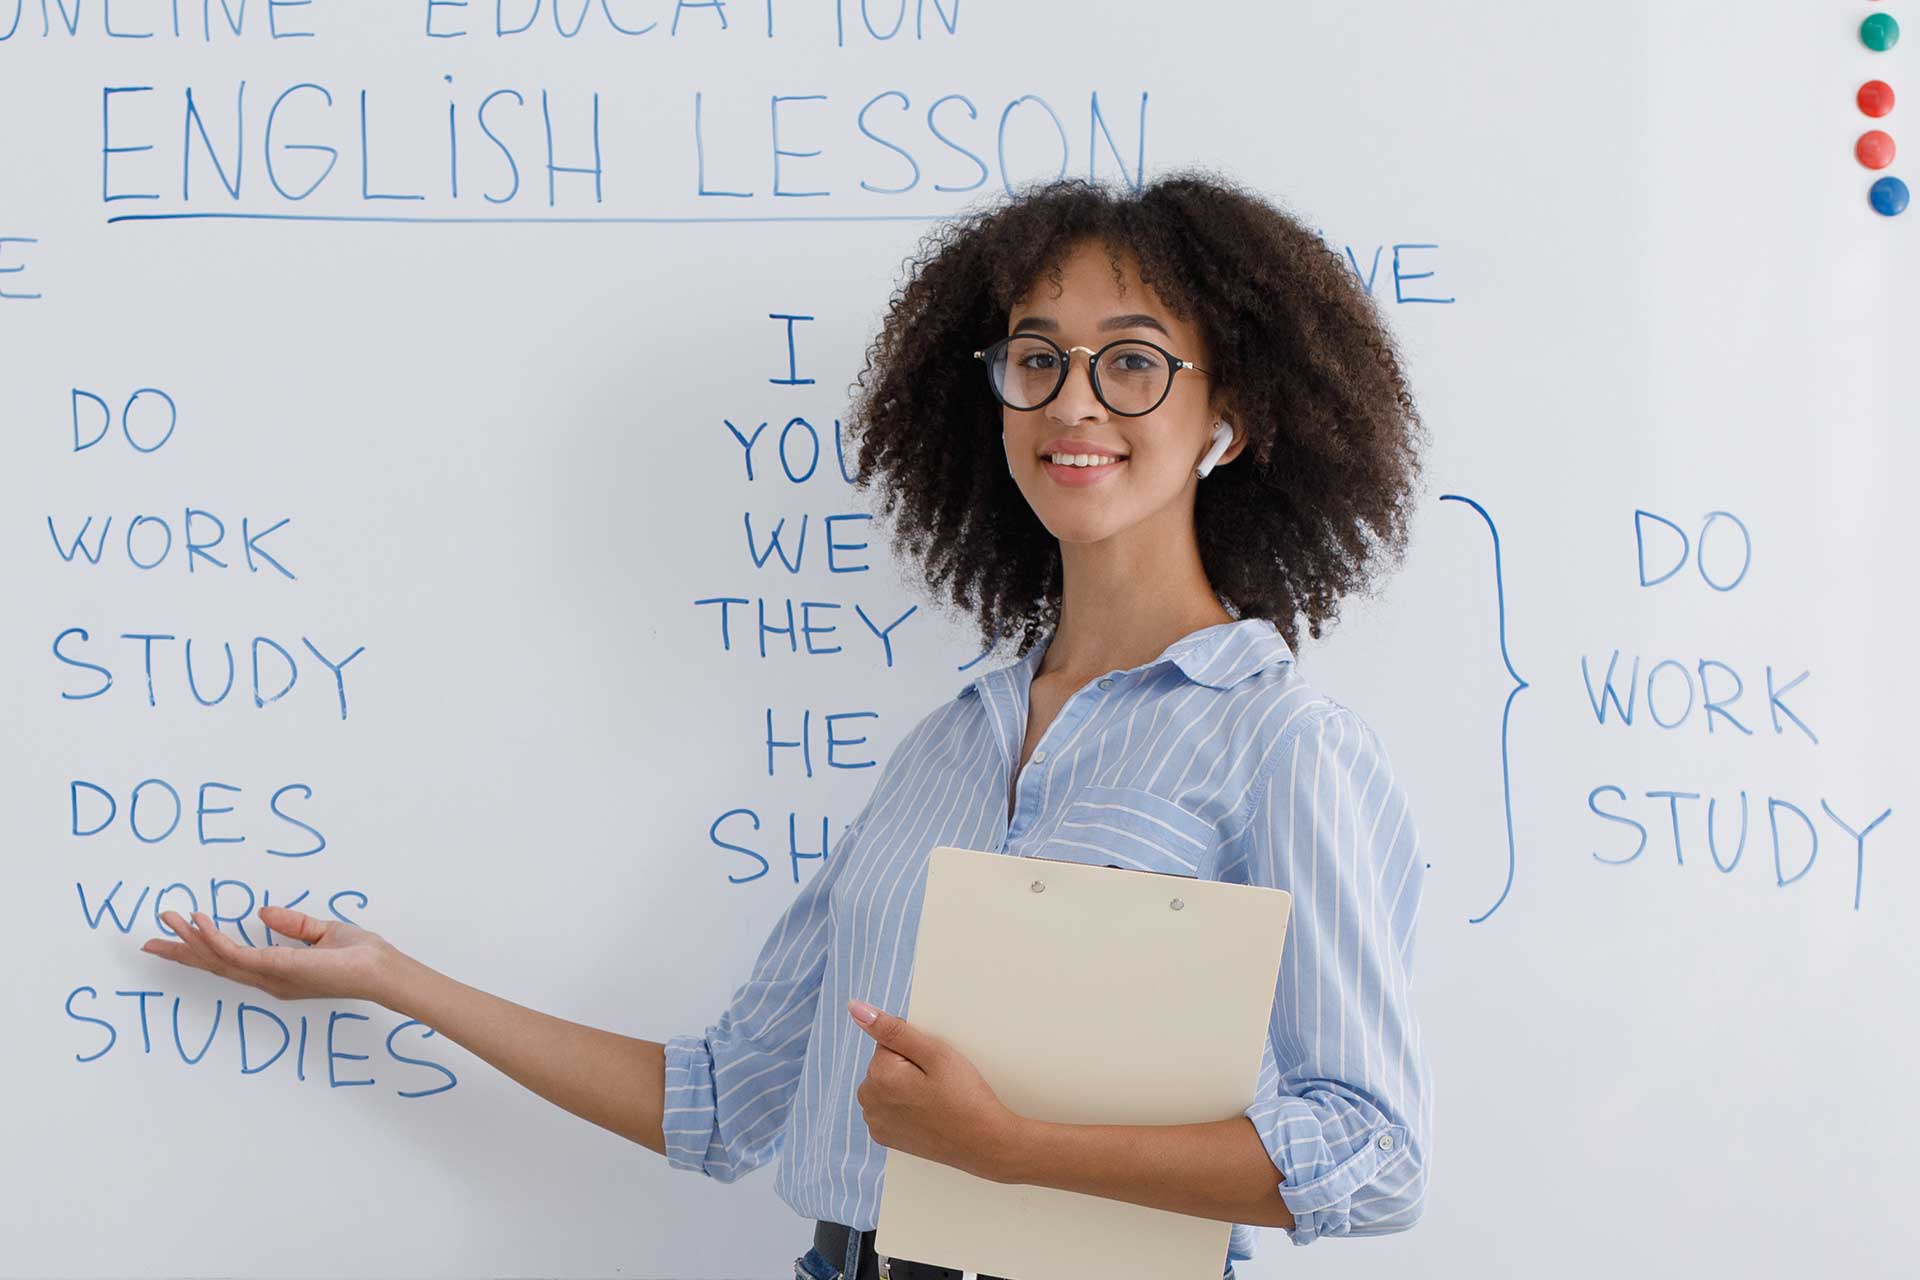 ONLINE EDUCATION
ENGLISH LESSON
DO
WORK
STUDY
DOES
WORKS
STUDIES
I
YOU
WE
THEY
HE
DO
WORK
STUDY